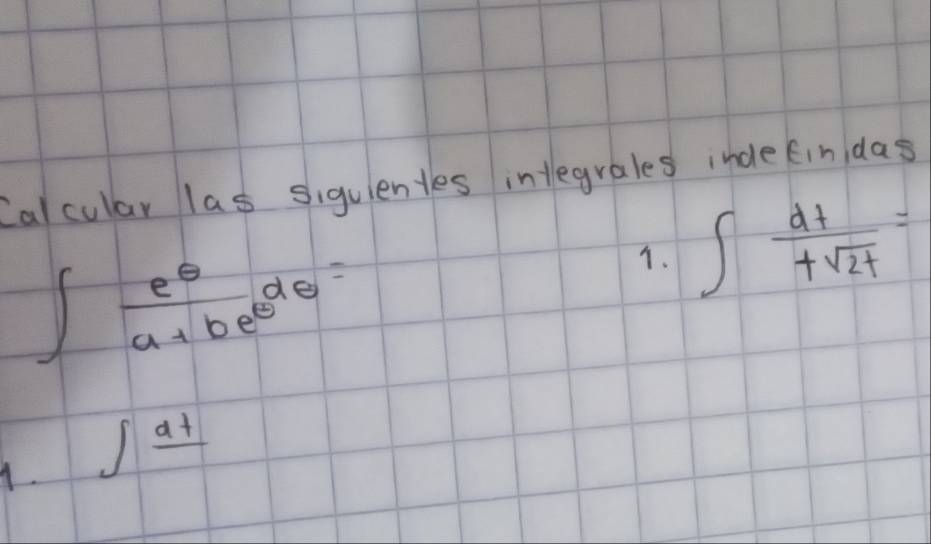 Calcular las siguientes integrales indefinidas
∫ e^θ / (a + be^θ) dθ =
1. ∫ dt / (t√2t) =
1. ∫ dt